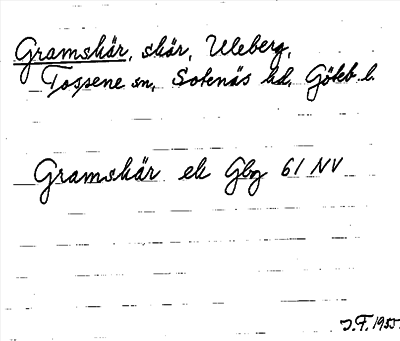 Gramskär, skär, Uleberg,
Tossene sn, Sotenäs hd, Göteb. l.
Gramskär ek Gbg 61 NV
J.F. 1955